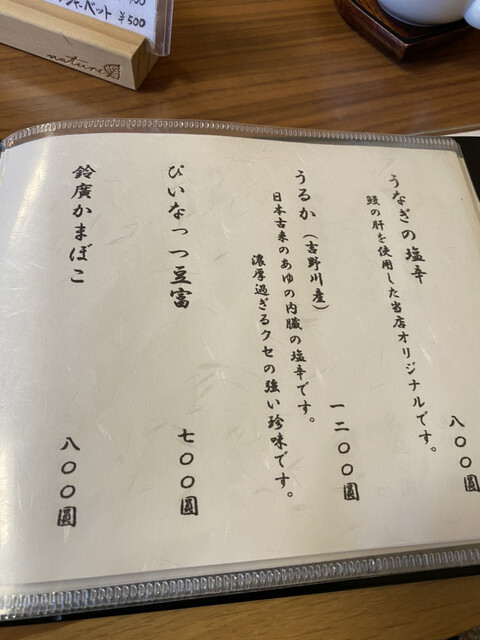 うなぎの塩辛
鰻の肝を使用した当店オリジナルです。
八〇〇圓
うるか（吉野川産）
日本古来のあゆの内臓の塩辛です。
濃厚過ぎるクセの強い珍味です。
一二〇〇圓
ぴいなっつ豆富
七〇〇圓
鈴廣かまぼこ
八〇〇圓
シャーベット ￥500
nature